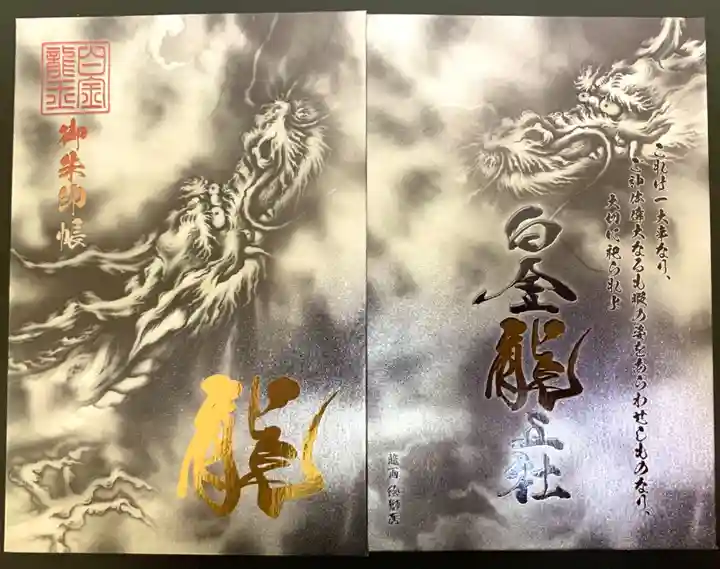 白金
龍王
御朱印帳
龍
これは一大事なり、
ご神法偉大なるも暇の姿をあらわせしものなり、
大切に祀られよ
白金龍王社
龍画